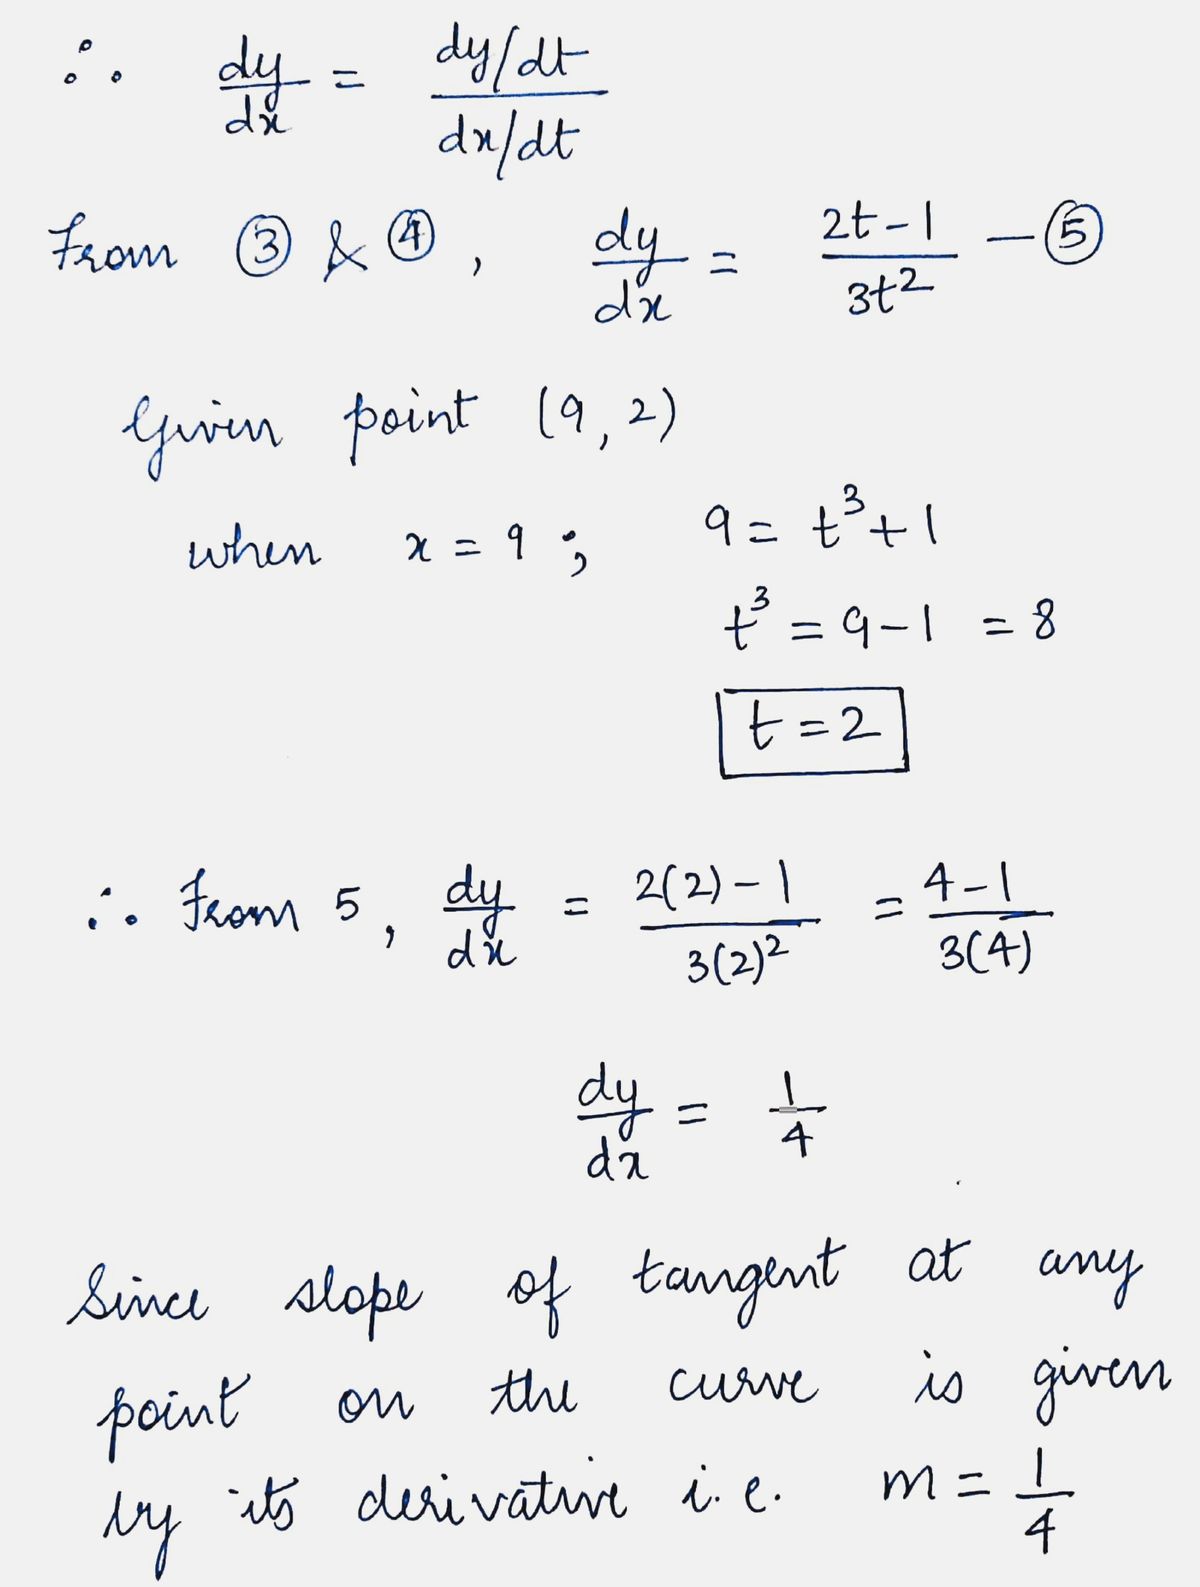 ∴ dy/dx = (dy/dt)/(dx/dt)
From ③ & ④, dy/dx = (2t-1)/(3t²) — ⑤
Given point (9, 2)
when x = 9 ; 9 = t³+1
t³ = 9-1 = 8
t = 2
∴ From 5, dy/dx = (2(2)-1)/(3(2)²) = (4-1)/(3(4))
dy/dx = 1/4
Since slope of tangent at any
point on the curve is given
by its derivative i.e. m = 1/4